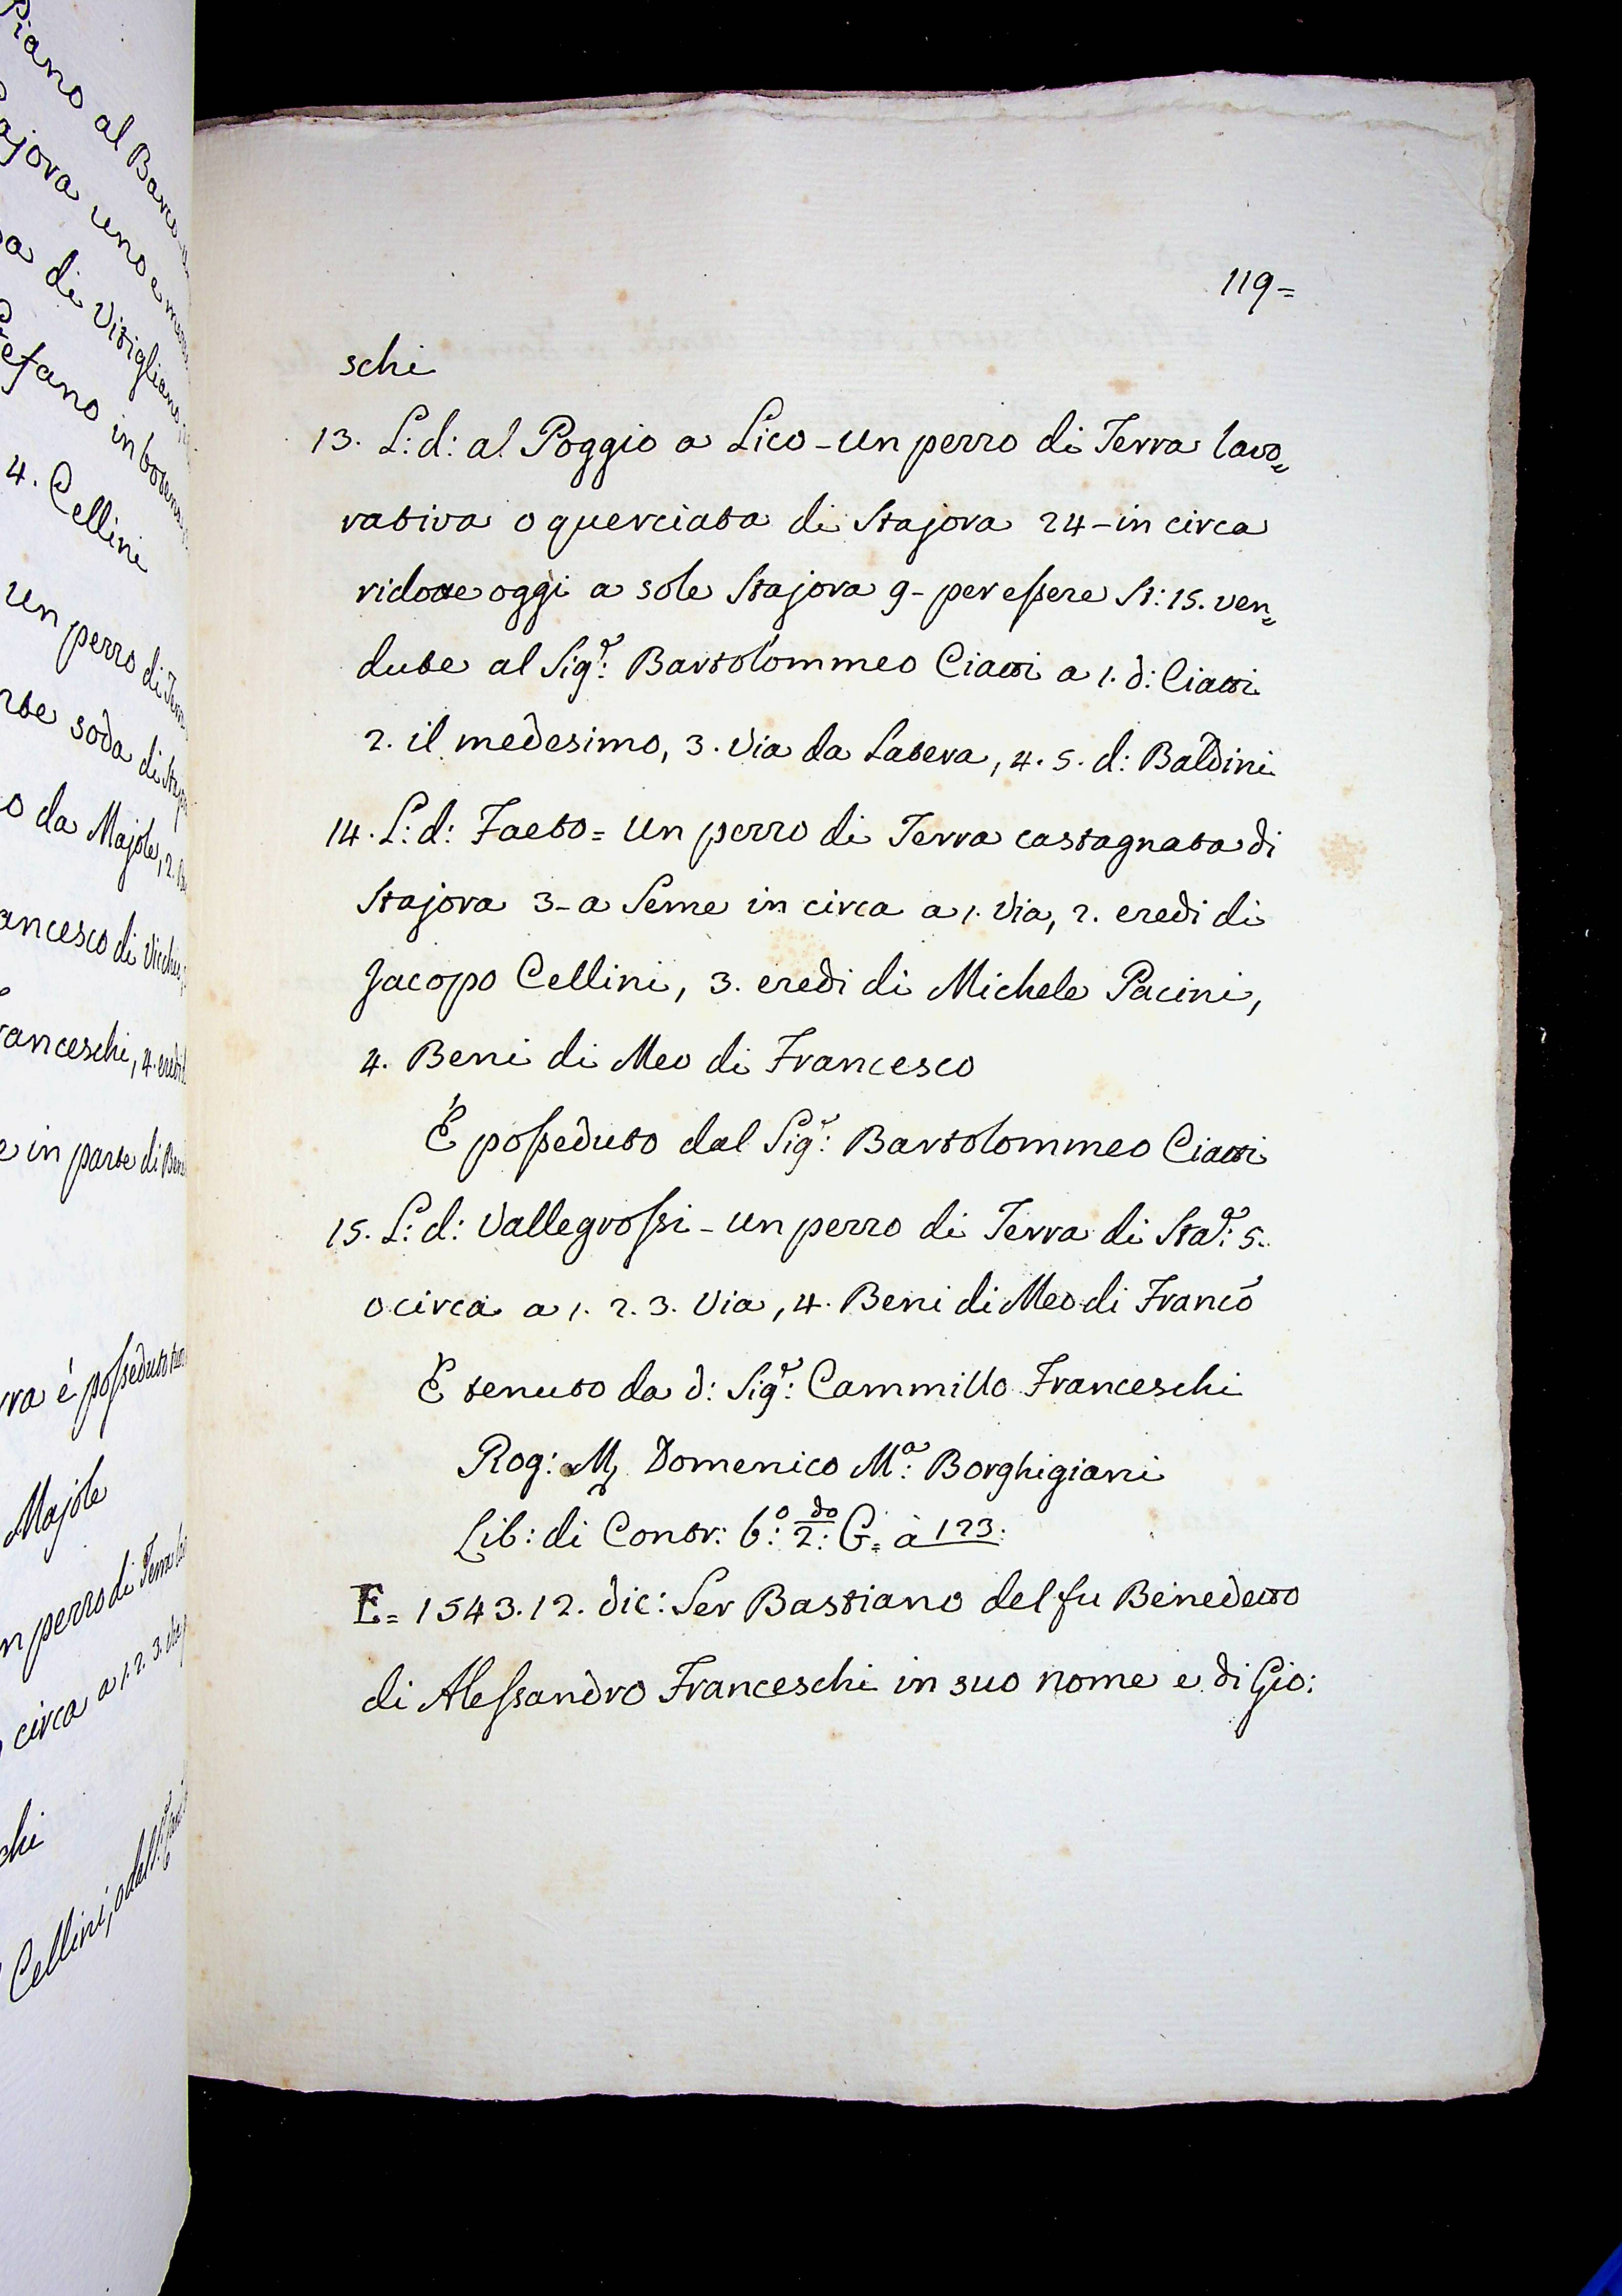 119=
schi
13. L: d: al Poggio a Lico - Un pezzo di Terra lavo=
rativa o querciata di Stajora 24 - in circa
ridotte oggi a sole Stajora 9 - per essere St: 15. ven=
dute al Sig.r: Bartolommeo Ciatti a 1. d: Ciatti
2. il medesimo, 3. Via da Latera, 4. 5. d: Baldini
14. L: d: Faeto = Un pezzo di Terra castagnata di
Stajora 3 - a Seme in circa a 1. Via, 2. eredi di
Jacopo Cellini, 3. eredi di Michele Pacini,
4. Beni di Meo di Francesco
È posseduto dal Sig.r: Bartolommeo Ciatti
15. L: d: Vallegrossi - Un pezzo di Terra di Sta.r: 5.
o circa a 1. 2. 3. Via, 4. Beni di Meo di Franco
È tenuto da d: Sig.r: Cammillo Franceschi
Rog: M Domenico M.a: Borghigiani
Lib: di Contr: 6.o: 2.do: G= à 123.
E= 1543. 12. dic: Ser Bastiano del fu Benedetto
di Alessandro Franceschi in suo nome e di Gio:
Piano al Barco
di Vitigliano
4. Cellini
un pezzo di
soda di
da Majole, 2.
di Vicchio
4. eredi
in parte di
è posseduto
Majole
pezzo di Terra
circa a 1. 2. 3.
chi
Cellini, o dell